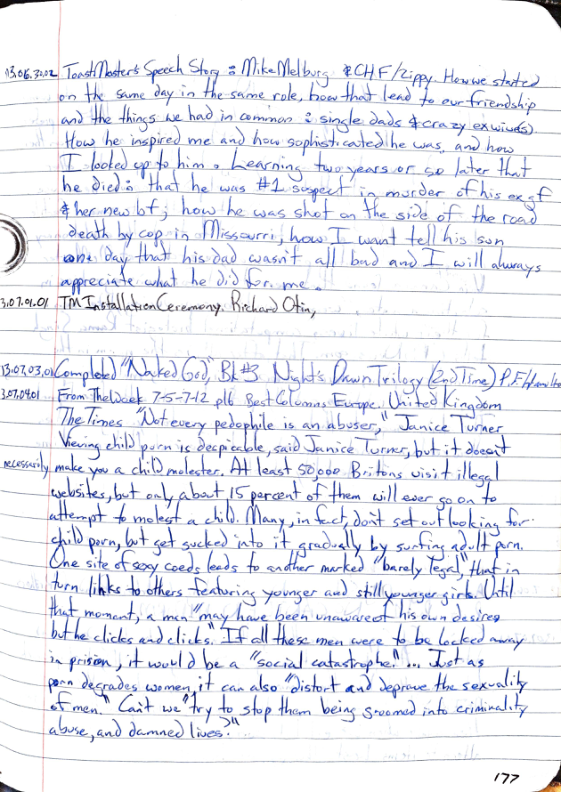 13.06.30.02 ToastMasters Speech Story: Mike Melburg & CHF/Zippy. How we started
on the same day in the same role, how that lead to our friendship
and the things we had in common: single dads & crazy exwives).
How he inspired me and how sophisticated he was, and how
I looked up to him. Learning two years or so later that
he died: that he was #1 suspect in murder of his exgf
& her new bf; how he was shot on the side of the road
death by cop in Missourri, how I want tell his son
one day that his dad wasn't all bad and I will always
appreciate what he did for me.
3.07.01.01 TM Installation Ceremony. Richard Otin,
13.07.03.01 Completed "Naked God," Bk#3 Night's Dawn Trilogy (2nd Time) P.F. Hamilto
3.07.04.01 From The Week 7-5-7-12 p16 Best Columns Europe. United Kingdom
The Times "Not every pedophile is an abuser," Janice Turner
Viewing child porn is despicable, said Janice Turner, but it doesnt
necessarily make you a child molester. At least 50,000 Britons visit illegal
websites, but only about 15 percent of them will ever go on to
attempt to molest a child. Many, in fact, don't set out looking for
child porn, but get sucked into it gradually by surfing adult porn.
One site of sexy coeds leads to another marked "barely legal," that in
turn links to others featuring younger and still younger girls. Until
that moment, a man "may have been unaware of his own desires
but he clicks and clicks." If all these men were to be locked away
in prision, it would be a "social catastrophe." ... Just as
porn degrades women, it can also "distort and deprave the sexuality
of men." Can't we "try to stop them being groomed into criminality
abuse, and damned lives?"
177